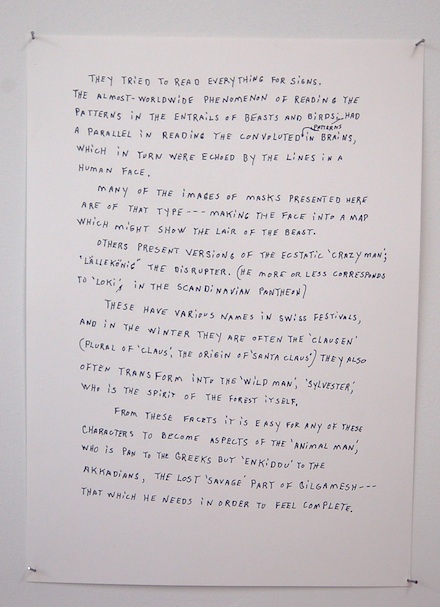 THEY TRIED TO READ EVERYTHING FOR SIGNS.
THE ALMOST-WORLDWIDE PHENOMENON OF READING THE
PATTERNS IN THE ENTRAILS OF BEASTS AND BIRDS, HAD
A PARALLEL IN READING THE CONVOLUTED PATTERNS IN BRAINS,
WHICH IN TURN WERE ECHOED BY THE LINES IN A
HUMAN FACE.
MANY OF THE IMAGES OF MASKS PRESENTED HERE
ARE OF THAT TYPE --- MAKING THE FACE INTO A MAP
WHICH MIGHT SHOW THE LAIR OF THE BEAST.
OTHERS PRESENT VERSIONS OF THE ECSTATIC 'CRAZY MAN',
'LÄLLEKÖNIG' THE DISRUPTER. (HE MORE OR LESS CORRESPONDS
TO 'LOKI', IN THE SCANDINAVIAN PANTHEON)
THESE HAVE VARIOUS NAMES IN SWISS FESTIVALS,
AND IN THE WINTER THEY ARE OFTEN THE 'CLAUSEN'
(PLURAL OF 'CLAUS', THE ORIGIN OF 'SANTA CLAUS') THEY ALSO
OFTEN TRANSFORM INTO THE 'WILD MAN', 'SYLVESTER',
WHO IS THE SPIRIT OF THE FOREST ITSELF.
FROM THESE FACETS IT IS EASY FOR ANY OF THESE
CHARACTERS TO BECOME ASPECTS OF THE 'ANIMAL MAN',
WHO IS PAN TO THE GREEKS BUT 'ENKIDDU' TO THE
AKKADIANS, THE LOST 'SAVAGE' PART OF GILGAMESH ---
THAT WHICH HE NEEDS IN ORDER TO FEEL COMPLETE.